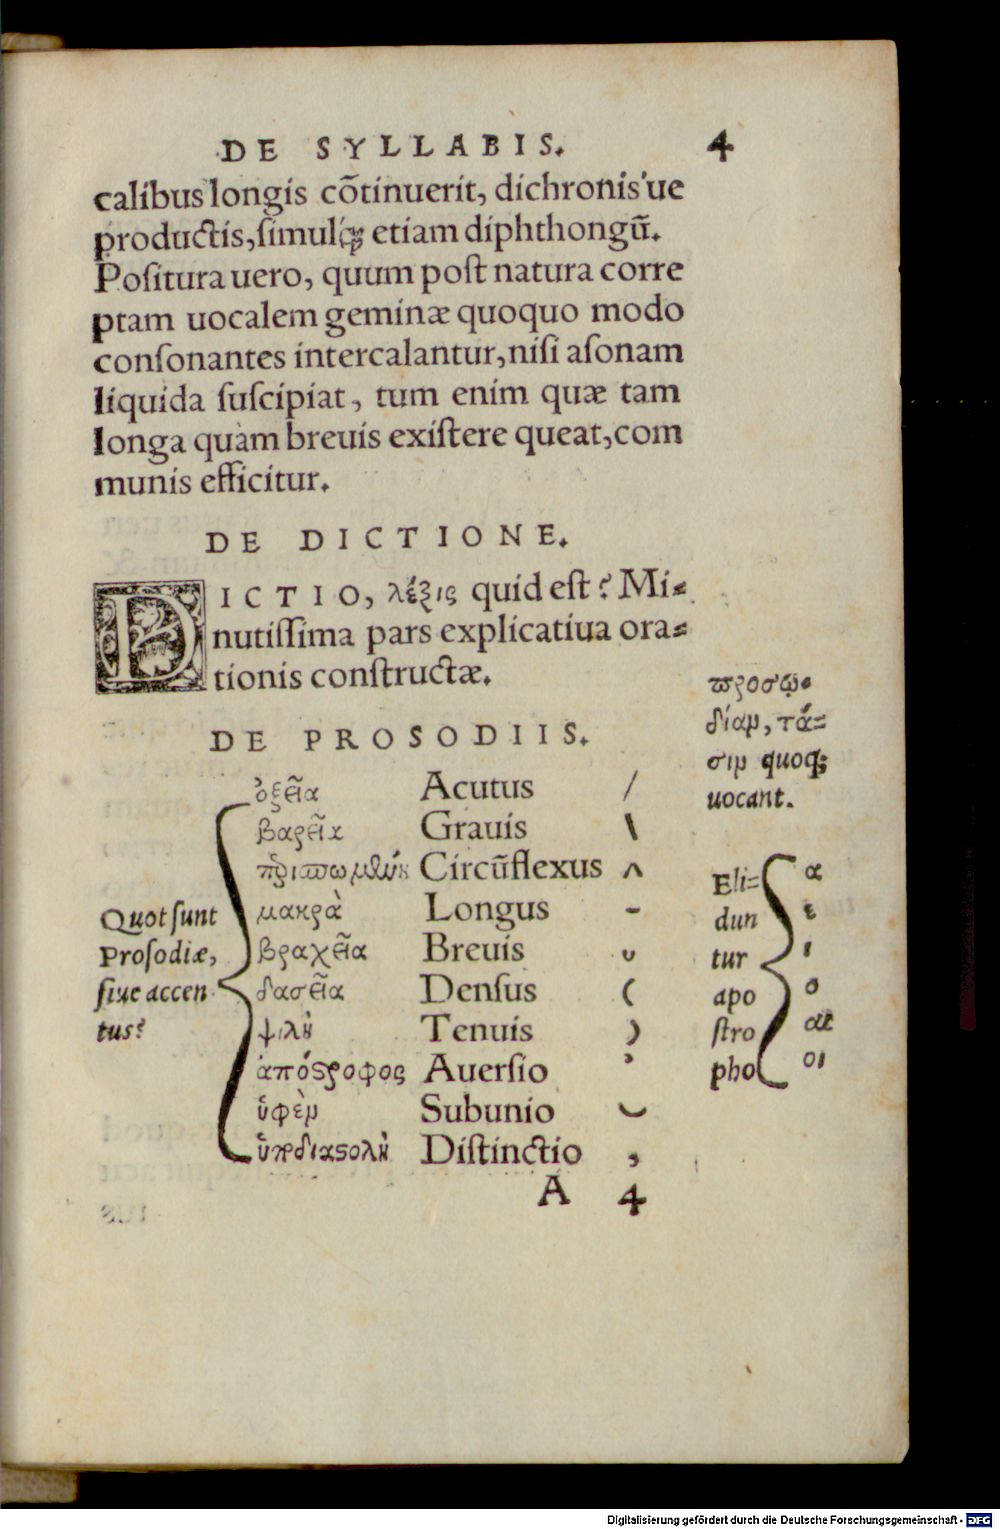 DE SYLLABIS. 4
calibus longis cõtinuerit, dichronis'ue
productis, simulq́; etiam diphthongũ.
Positura uero, quum post natura corre
ptam uocalem geminæ quoquo modo
consonantes intercalantur, nisi asonam
liquida suscipiat, tum enim quæ tam
longa quàm breuis existere queat, com
munis efficitur.
DE DICTIONE.
DICTIO, λέξις quid est? Mi-
nutissima pars explicatiua ora-
tionis constructæ.
προσῳ-
δίαμ, τά-
σιμ quoq;
uocant.
DE PROSODIIS.
Quot sunt
Prosodiæ,
siue accen
tus?
ὀξεῖα Acutus /
βαρεῖα Grauis \
περισπωμένη Circũflexus ^
μακρὰ Longus -
βραχεῖα Breuis ᴗ
δασεῖα Densus (
ψιλὴ Tenuis )
ἀπόστροφος Auersio ’
ὑφὲμ Subunio ‿
ὑποδιαστολὴ Distinctio ,
Eli-
dun
tur
apo
stro
pho
α
ε
ι
ο
αι
οι
A 4
Digitalisierung gefördert durch die Deutsche Forschungsgemeinschaft - DFG